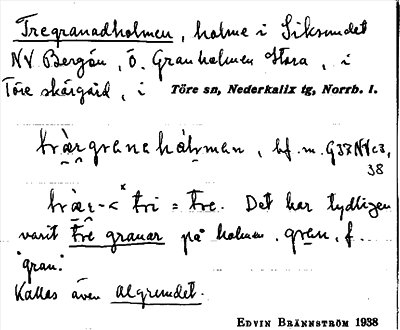 Tregranadholmen, holme i Siksundet
NV Bergön, Ö. Granholmen Stora, i
Töre skärgård, i Töre sn, Nederkalix tg, Norrb. l.
bf. m. G33NVc3,
38
tri = tre. Det har tydligen
varit tre granar på holmen. gran, f.
"gran."
Kallas även algrundet.
EDVIN BRÄNNSTRÖM 1938